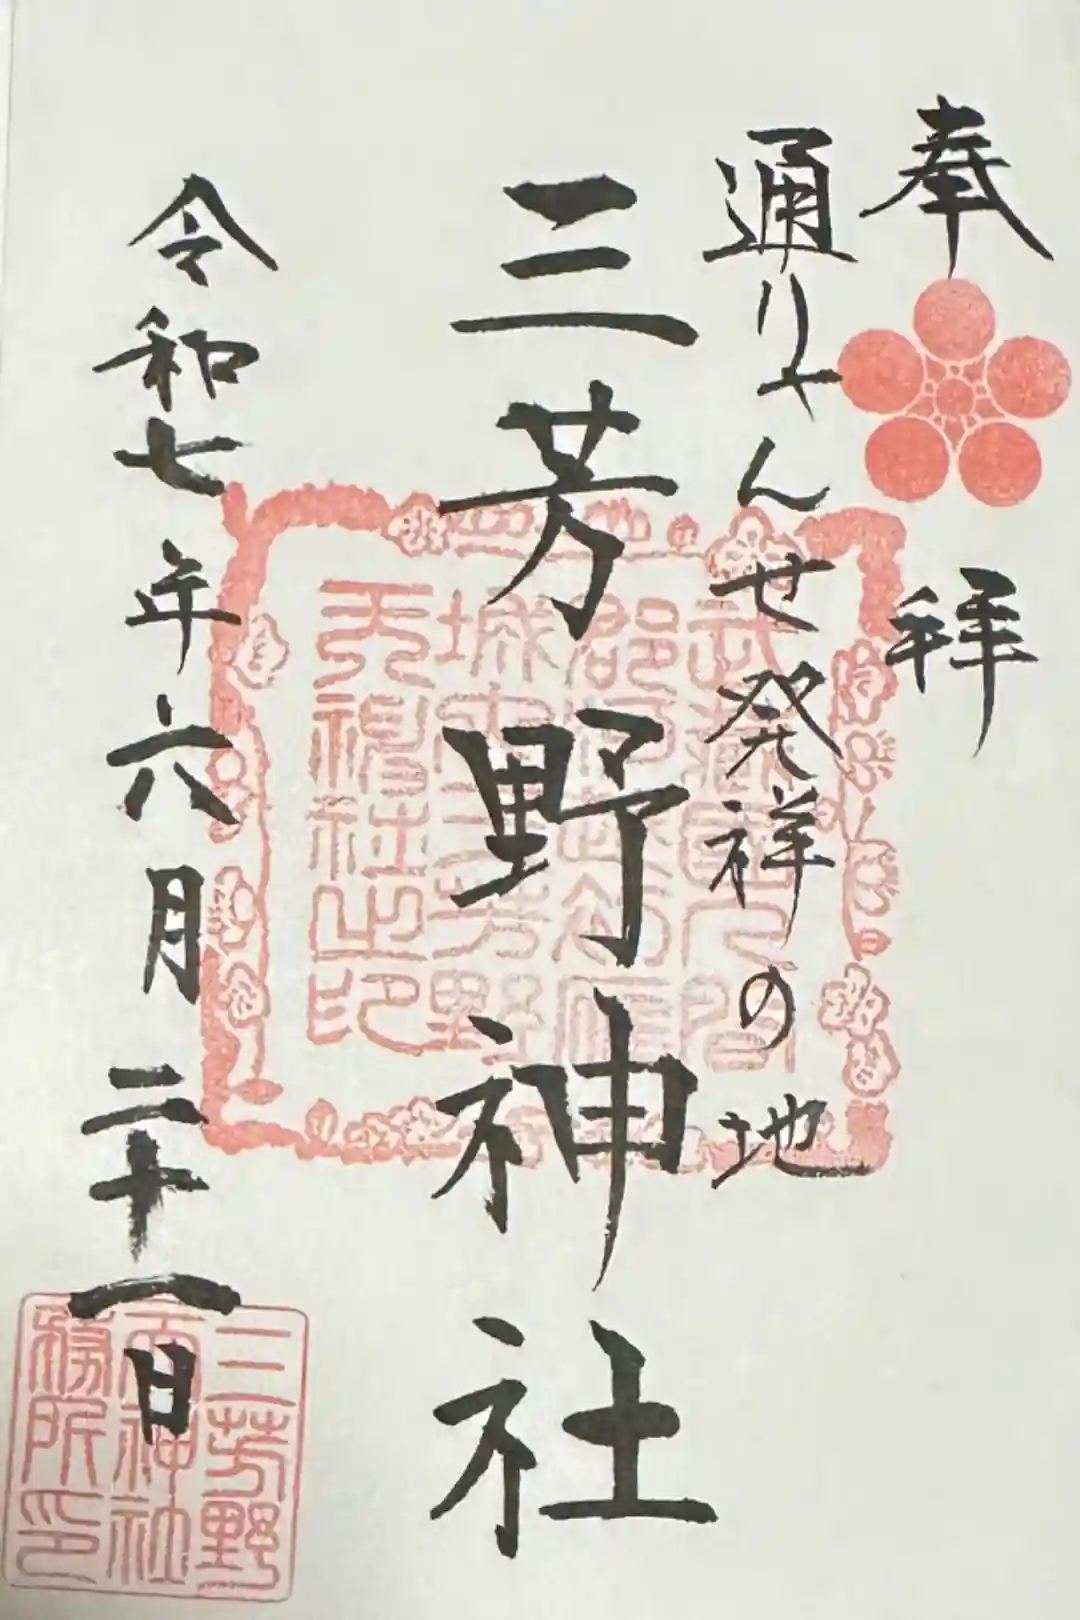 奉拝
通りゃんせ発祥の地
三芳野神社
令和七年六月二十一日
三芳野
神社
務所印
天神社之印
城中三芳野